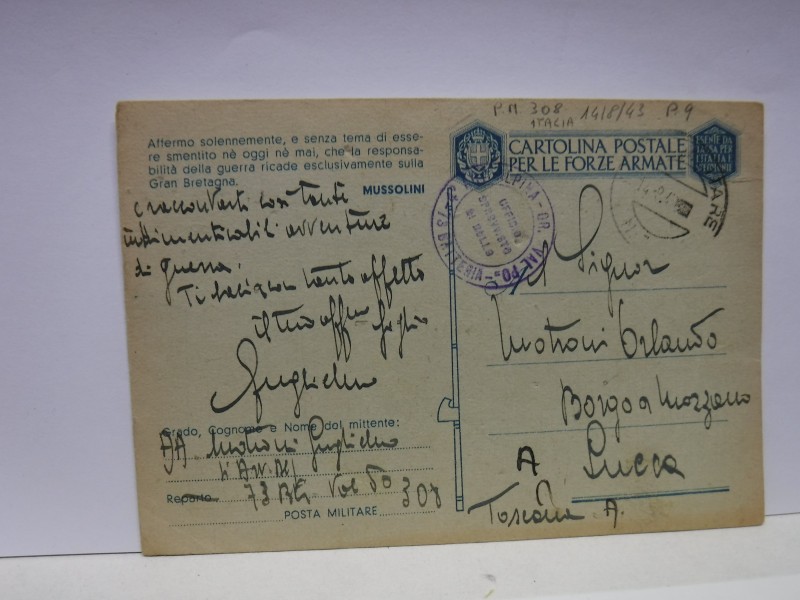 P.M. 308 14/8/43 P.9
ITALIA
Affermo solennemente, e senza tema di esse-
re smentito nè oggi nè mai, che la responsa-
bilità della guerra ricade esclusivamente sulla
Gran Bretagna.
MUSSOLINI
CARTOLINA POSTALE
PER LE FORZE ARMATE
e raccontarti così tante
indimenticabili avventure
di guerra.
Ti bacio con tanto affetto
il tuo aff figlio
Guglielmo
Grado, Cognome e Nome del mittente:
Motroni Guglielmo
73 Btr. Val Po 308
Reparto
POSTA MILITARE
ALPINA - GR. VAL PO
UFFICIO
SPROVVISTO
DI BOLLO
Al Signor
Motroni Orlando
Borgo a Mozzano
A Lucca
Toscana A.